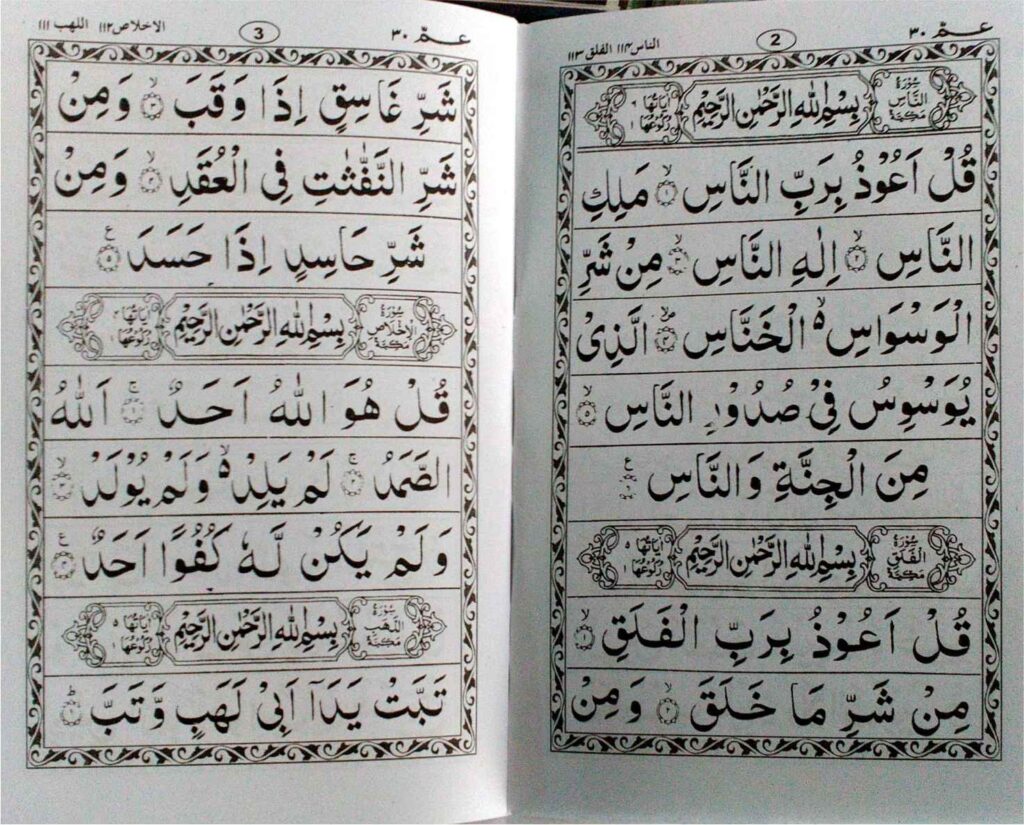 عمّ ۳۰
2
الناس ۱۱۴ الفلق ۱۱۳
سُوْرَةُ النَّاسِ مَكِّيَّةٌ بِسْمِ اللهِ الرَّحْمٰنِ الرَّحِيْمِ اٰيَاتُهَا ۶ رُكُوْعُهَا ۱
قُلْ اَعُوْذُ بِرَبِّ النَّاسِ ۱ مَلِكِ
النَّاسِ ۲ اِلٰهِ النَّاسِ ۳ مِنْ شَرِّ
الْوَسْوَاسِ الْخَنَّاسِ ۴ الَّذِىْ
يُوَسْوِسُ فِىْ صُدُوْرِ النَّاسِ ۵
مِنَ الْجِنَّةِ وَالنَّاسِ ۶
سُوْرَةُ الْفَلَقِ مَكِّيَّةٌ بِسْمِ اللهِ الرَّحْمٰنِ الرَّحِيْمِ اٰيَاتُهَا ۵ رُكُوْعُهَا ۱
قُلْ اَعُوْذُ بِرَبِّ الْفَلَقِ ۱
مِنْ شَرِّ مَا خَلَقَ ۲ وَمِنْ
عمّ ۳۰
3
الاخلاص ۱۱۲ اللهب ۱۱۱
شَرِّ غَاسِقٍ اِذَا وَقَبَ ۳ وَمِنْ
شَرِّ النَّفّٰثٰتِ فِى الْعُقَدِ ۴ وَمِنْ
شَرِّ حَاسِدٍ اِذَا حَسَدَ ۵
سُوْرَةُ الْاِخْلَاصِ مَكِّيَّةٌ بِسْمِ اللهِ الرَّحْمٰنِ الرَّحِيْمِ اٰيَاتُهَا ۴ رُكُوْعُهَا ۱
قُلْ هُوَ اللهُ اَحَدٌ ۱ اَللهُ
الصَّمَدُ ۲ لَمْ يَلِدْ وَلَمْ يُوْلَدْ ۳
وَلَمْ يَكُنْ لَّهٗ كُفُوًا اَحَدٌ ۴
سُوْرَةُ اللَّهَبِ مَكِّيَّةٌ بِسْمِ اللهِ الرَّحْمٰنِ الرَّحِيْمِ اٰيَاتُهَا ۵ رُكُوْعُهَا ۱
تَبَّتْ يَدَآ اَبِىْ لَهَبٍ وَّتَبَّ ۱